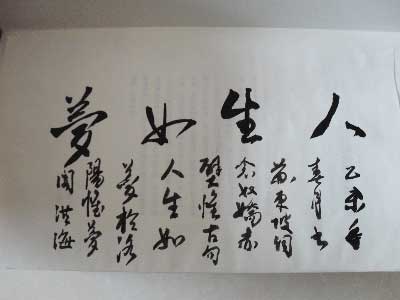 人生如夢
乙未年
春月书
苏東坡词
念奴嬌赤
壁懷古句
人生如
夢於洛
陽夢
閣洪海